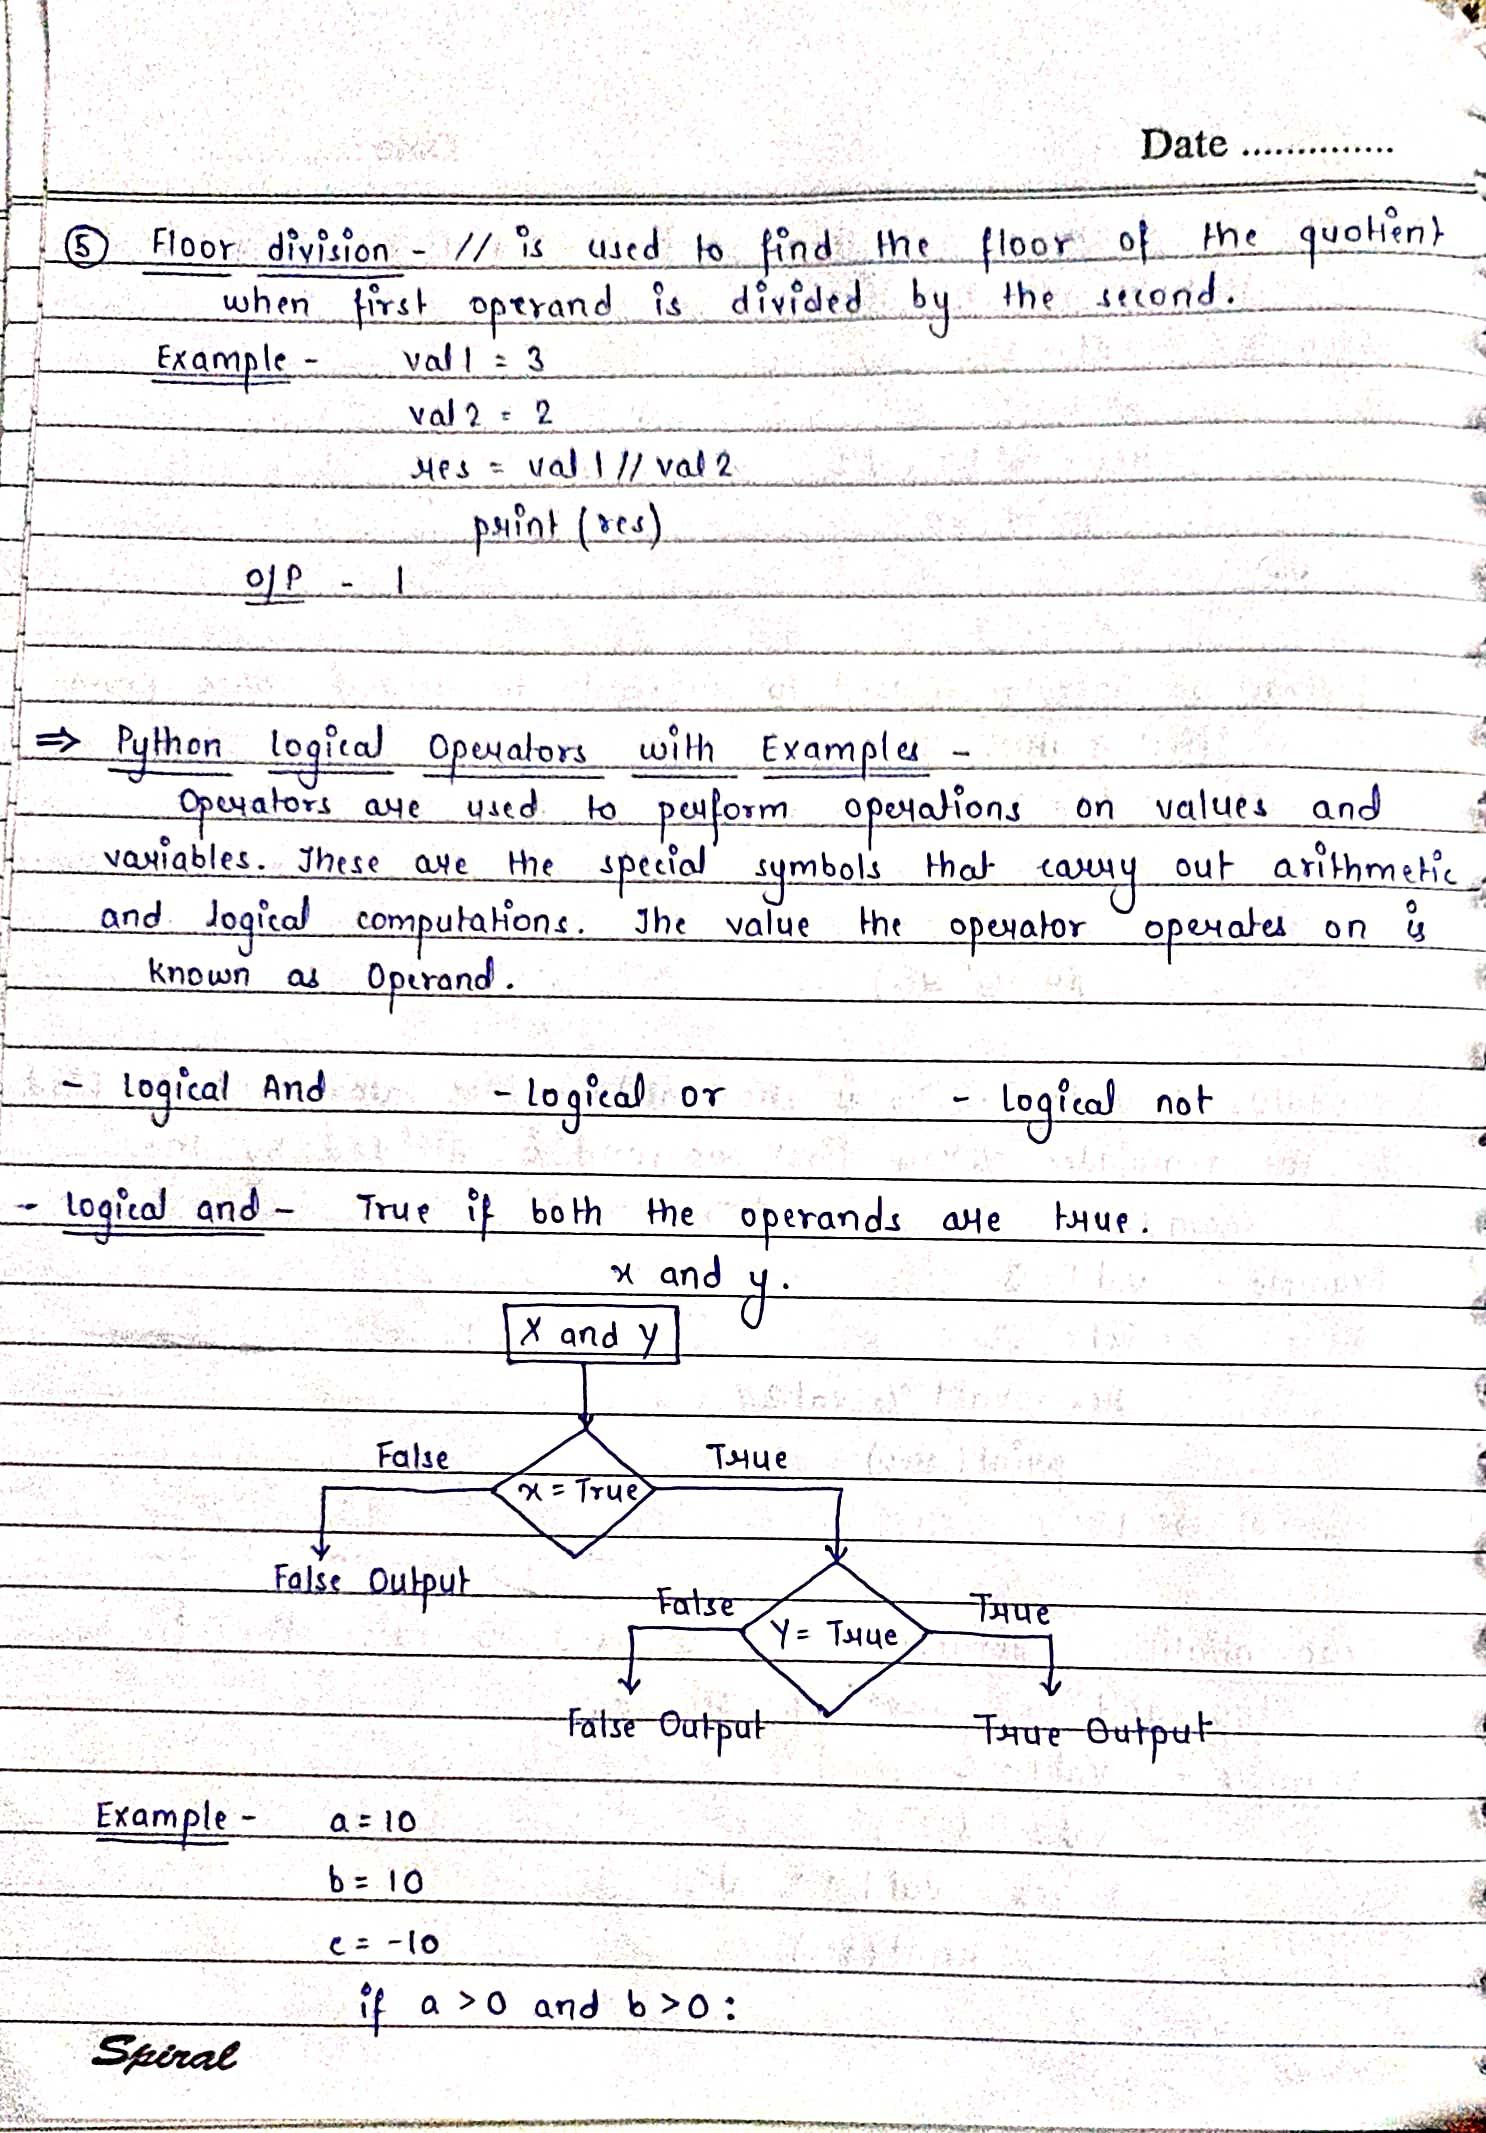 Date ..............
⑤ Floor division - // is used to find the floor of the quotient
when first operand is divided by the second.
Example - val1 = 3
val2 = 2
res = val1 // val2
print (res)
O/P - 1
⇒ Python logical Operators with Examples -
Operators are used to perform operations on values and
variables. These are the special symbols that carry out arithmetic
and logical computations. The value the operator operates on is
known as Operand.
- logical And - logical or - logical not
- logical and - True if both the operands are true.
x and y.
X and y
False True
x = True
False Output
False True
Y = True
False Output True Output
Example - a = 10
b = 10
c = -10
if a > 0 and b > 0 :
Spiral